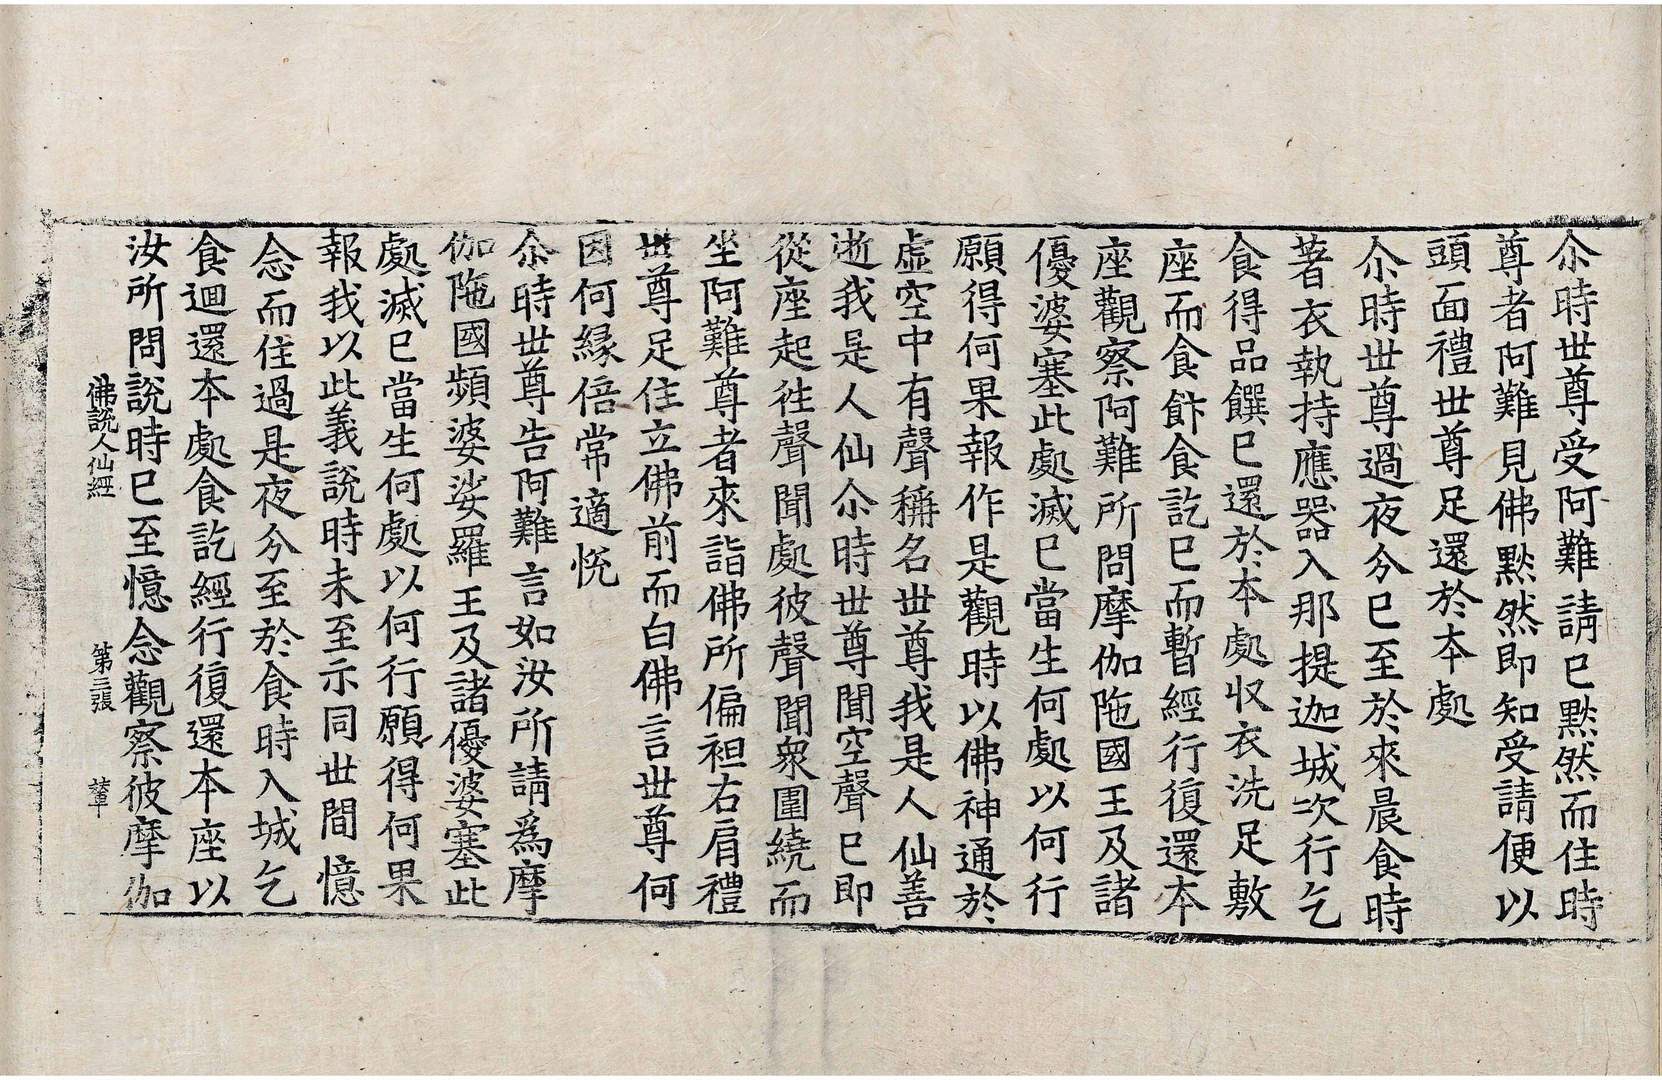 尒時世尊受阿難請已默然而住時
尊者阿難見佛默然即知受請便以
頭面禮世尊足還於本處
尒時世尊過夜分已至於來晨食時
著衣執持應器入那提迦城次行乞
食得品饌已還於本處収衣洗足敷
座而食飰食訖已而暫經行復還本
座觀察阿難所問摩伽陁國王及諸
優婆塞此處滅已當生何處以何行
願得何果報作是觀時以佛神通於
虛空中有聲稱名世尊我是人仙善
逝我是人仙尒時世尊聞空聲已即
從座起往聲聞處彼聲聞衆圍繞而
坐阿難尊者來詣佛所偏袒右肩禮
世尊足住立佛前而白佛言世尊何
因何緣倍常適悅
尒時世尊告阿難言如汝所請爲摩
伽陁國頻婆娑羅王及諸優婆塞此
處滅已當生何處以何行願得何果
報我以此義說時未至示同世間憶
念而住過是夜分至於食時入城乞
食迴還本處食訖經行復還本座以
汝所問說時已至憶念觀察彼摩伽
佛說人仙經 第三張 輦